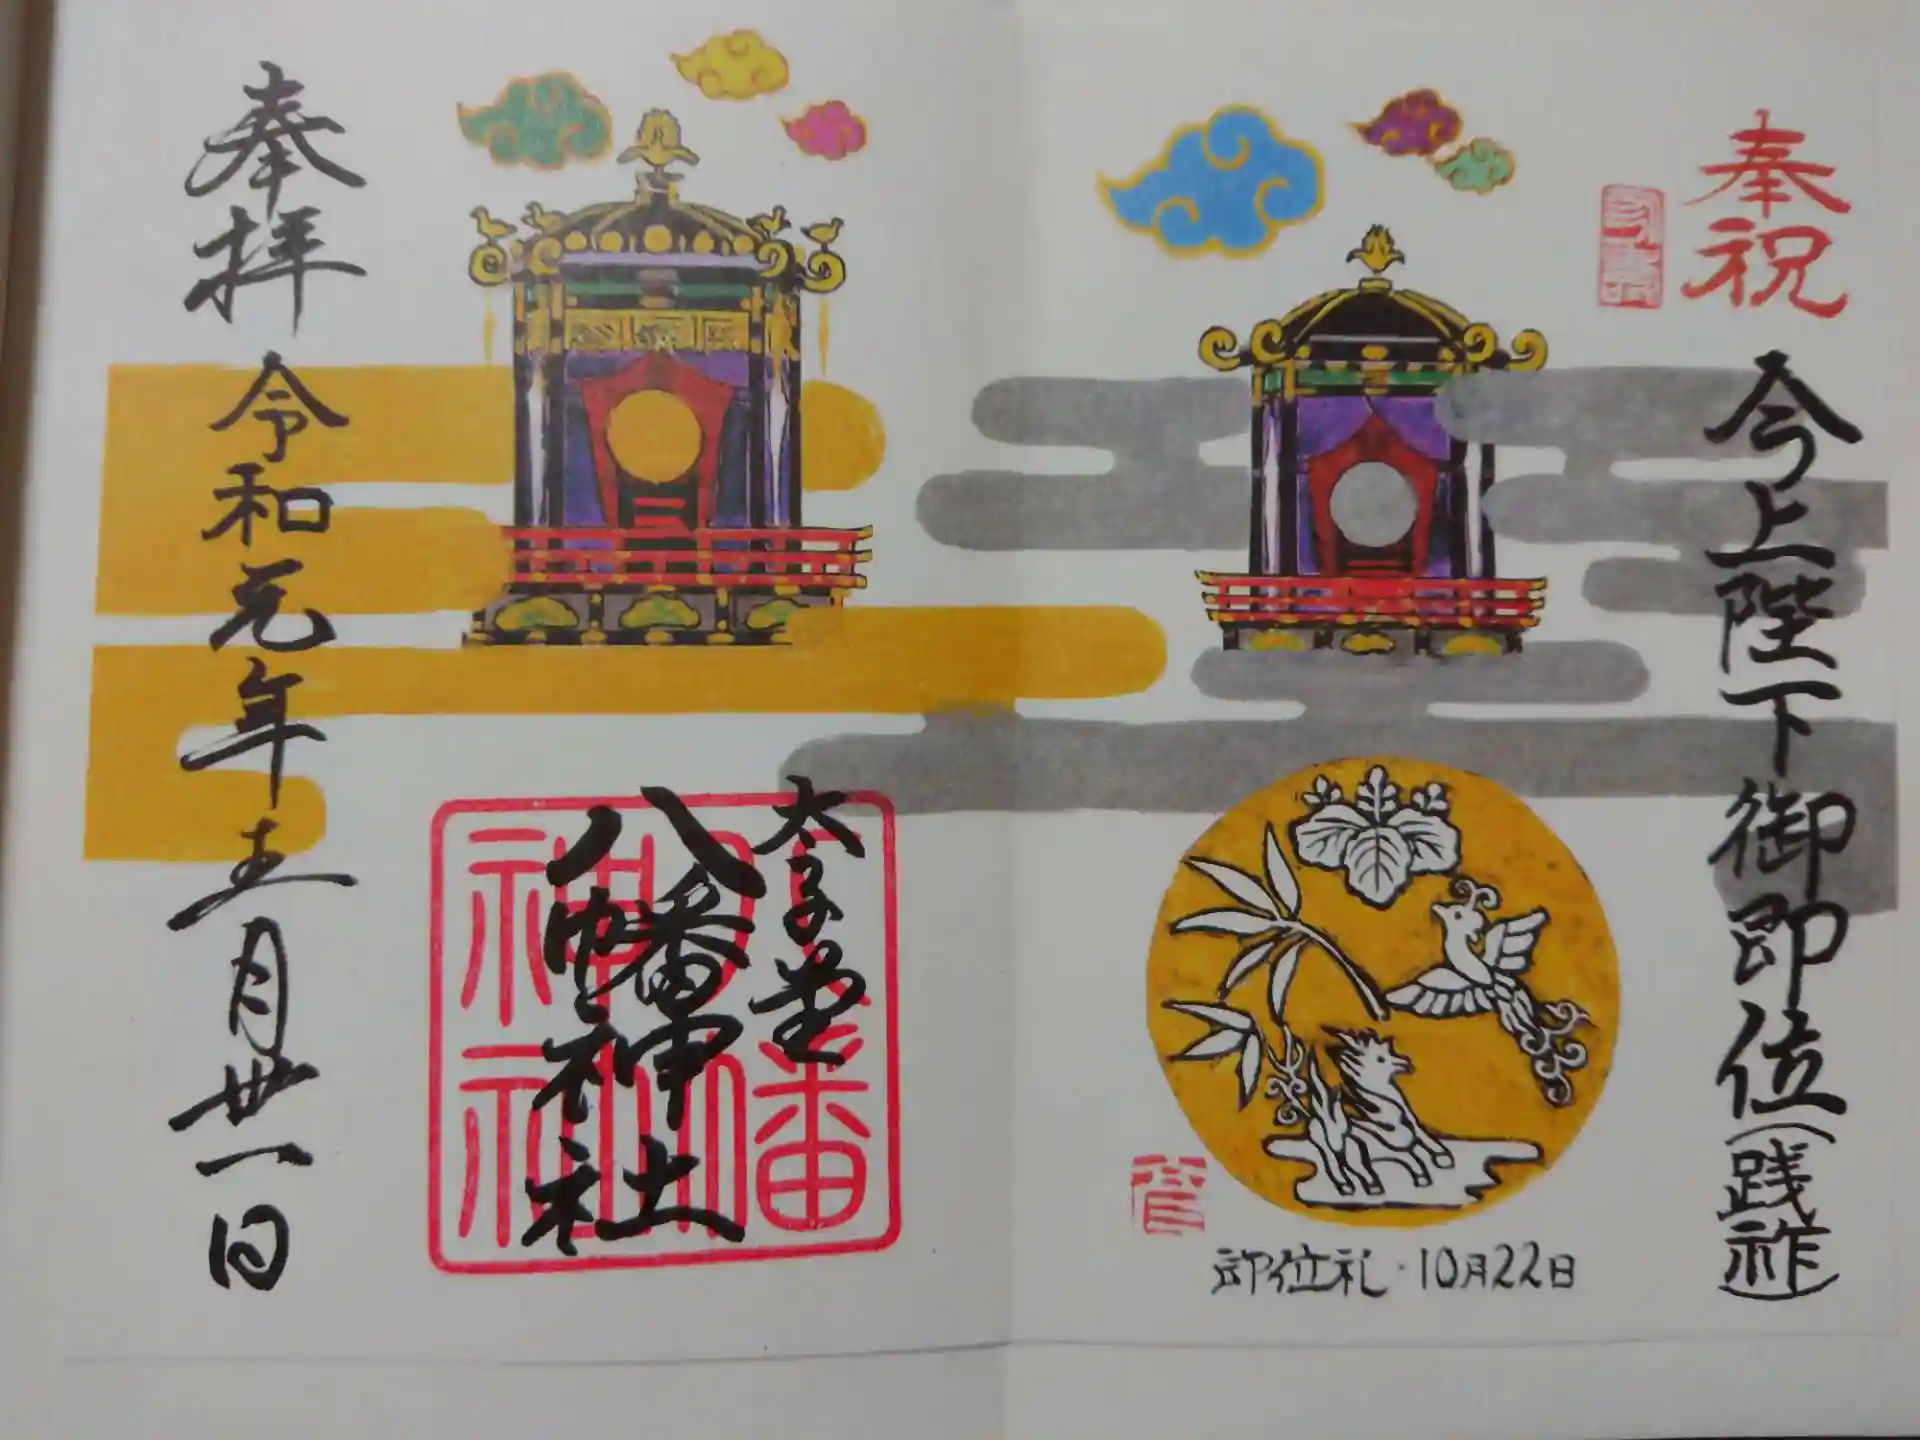 奉祝
今上陛下御即位(践祚)
即位礼・10月22日
太子堂
八幡神社
八幡
神社
奉拝
令和元年五月卅一日